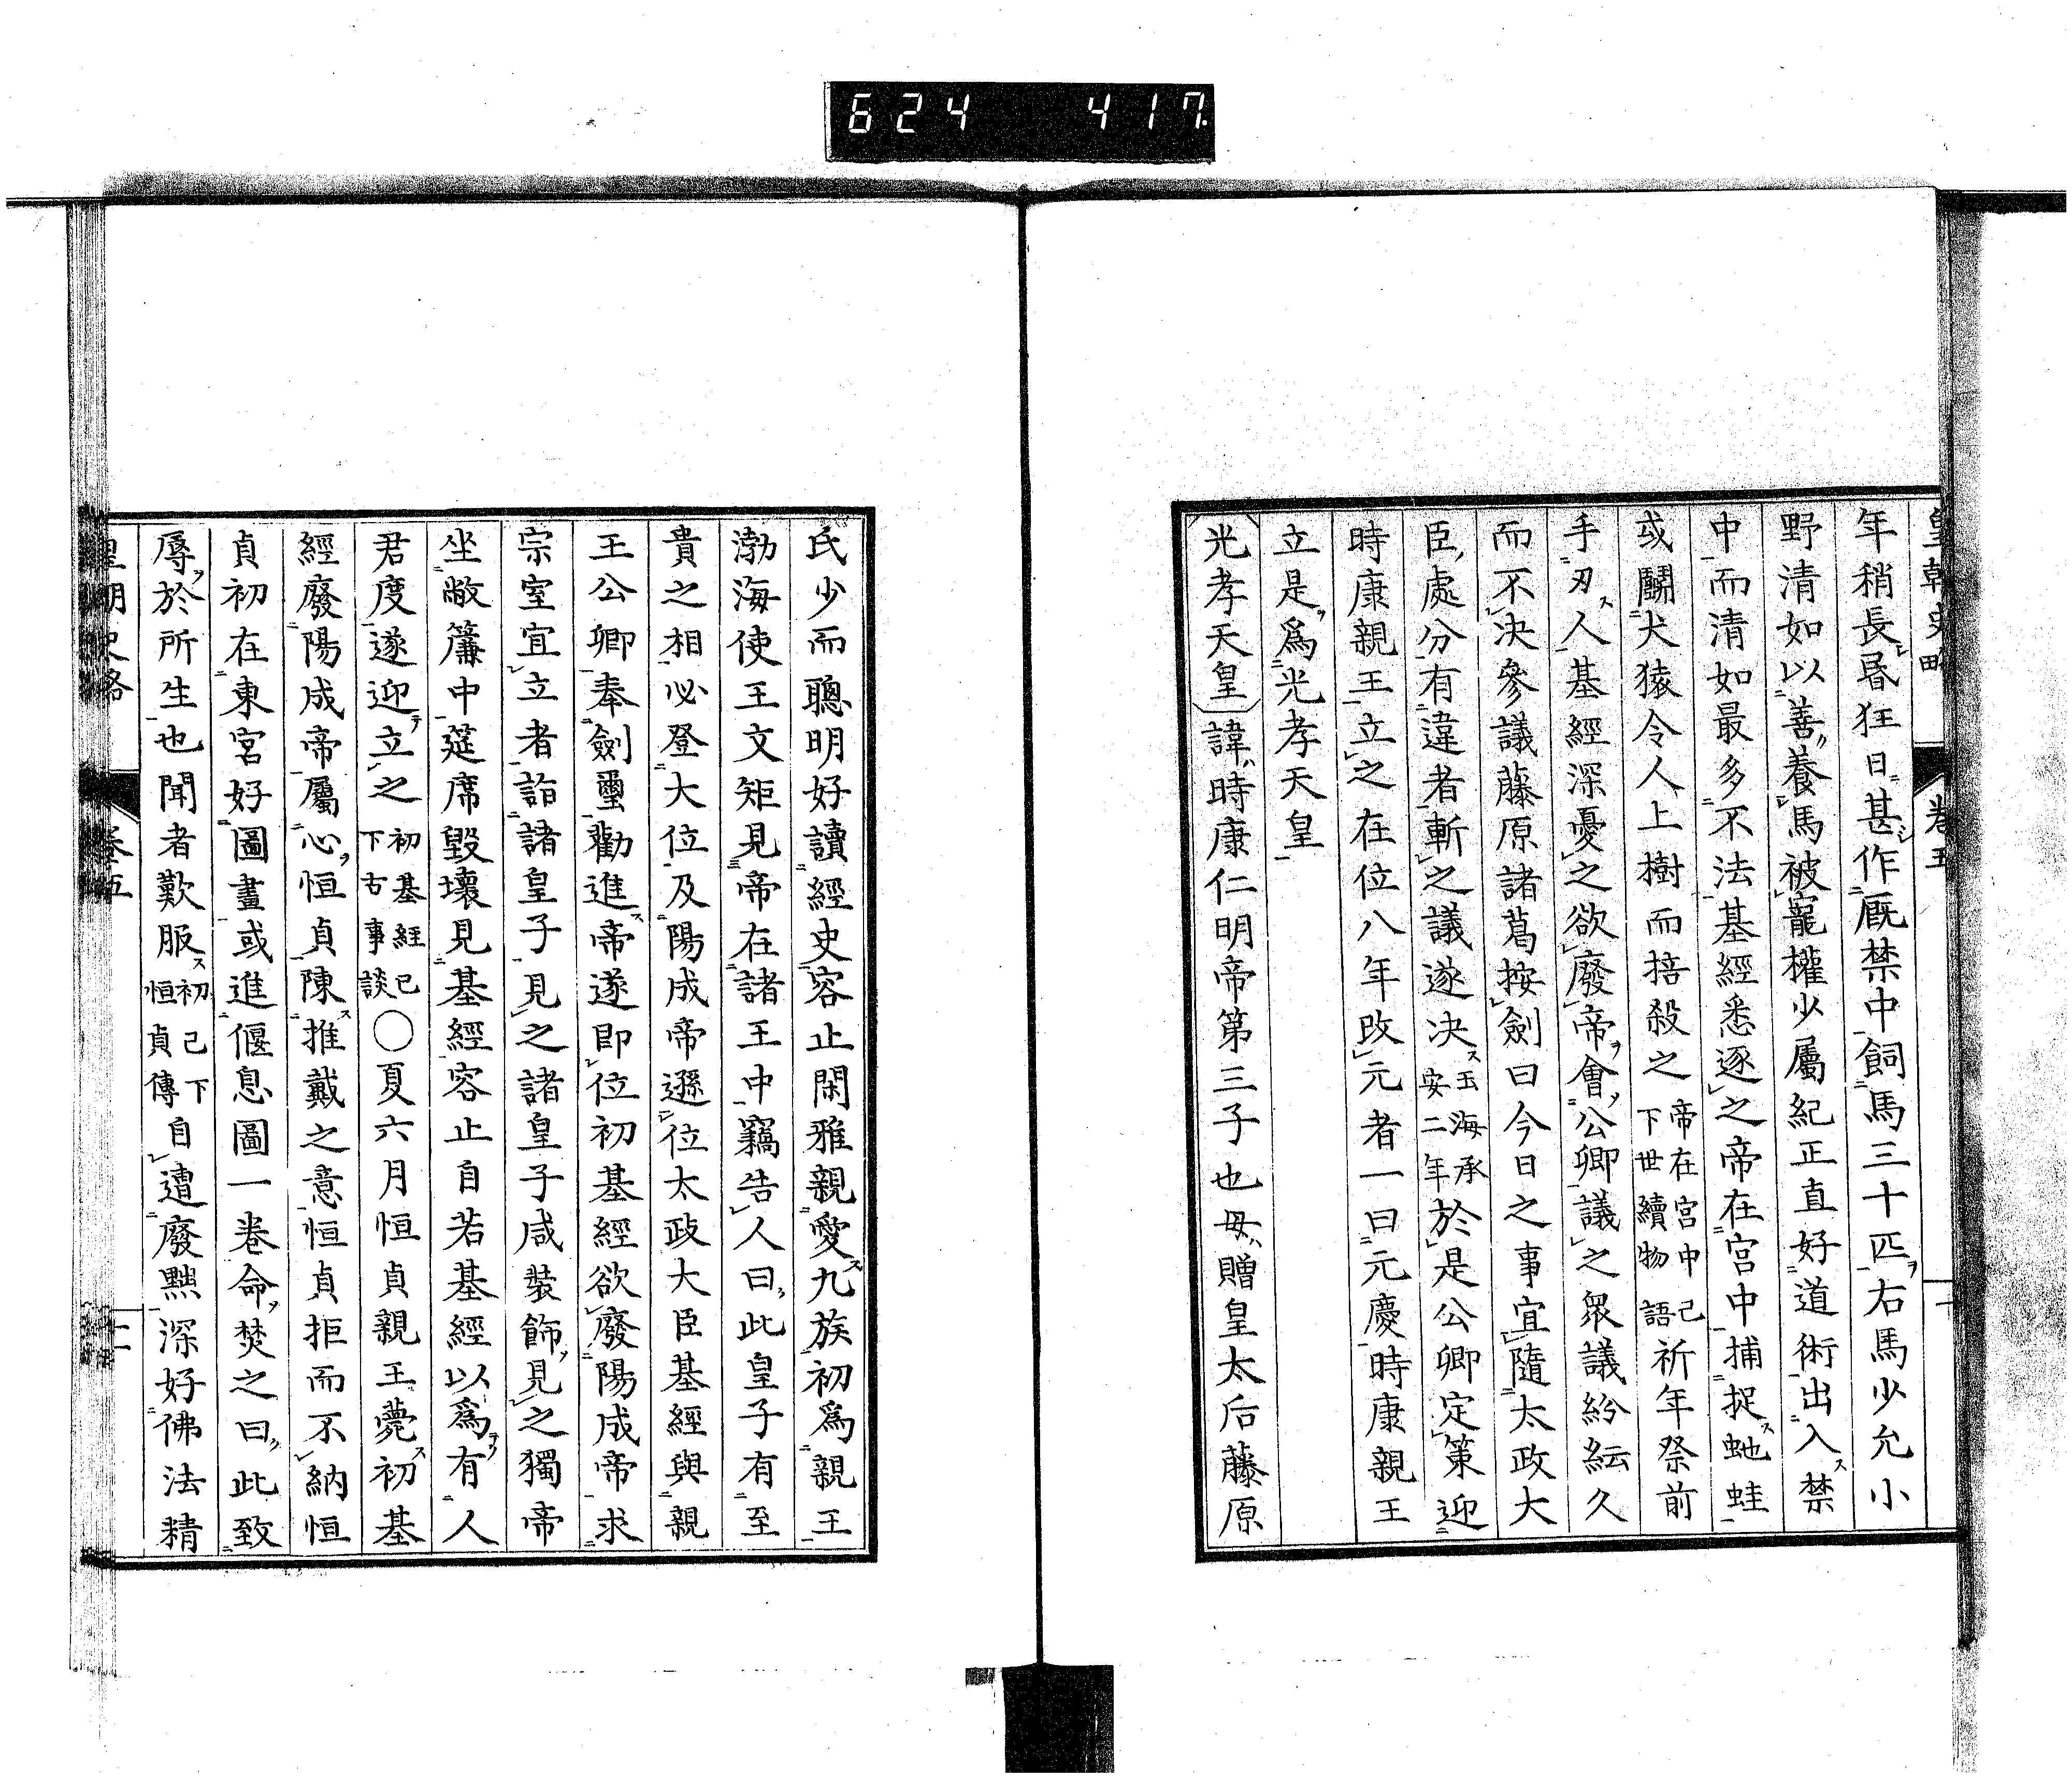 624 417
皇朝史略 卷五
年稍長昬狂日甚作厩禁中飼馬三十匹右馬少允小
野清如以善養馬被寵權少屬紀正直好道術出入禁
中而清如最多不法基經悉逐之帝在宮中捕捉虵蛙
或鬭犬猿令人上樹而掊殺之帝在宮中已下世續物語祈年祭前
手刃人基經深憂之欲廢帝會公卿議之衆議紛紜久
而不決參議藤原諸葛按劍曰今日之事宜隨太政大
臣處分有違者斬之議遂决玉海承安二年於是公卿定策迎
時康親王立之在位八年改元者一曰元慶時康親王
立是爲光孝天皇
光孝天皇諱時康仁明帝第三子也母贈皇太后藤原
氏少而聰明好讀經史容止閑雅親愛九族初爲親王
渤海使王文矩見帝在諸王中竊告人曰此皇子有至
貴之相必登大位及陽成帝遜位太政大臣基經與親
王公卿奉劍璽勸進帝遂即位初基經欲廢陽成帝求
宗室宜立者詣諸皇子見之諸皇子咸裝飾見之獨帝
坐敝簾中莚席毀壞見基經容止自若基經以爲有人
君度遂迎立之初基經已下古事談〇夏六月恒貞親王薨初基
經廢陽成帝屬心恒貞陳推戴之意恒貞拒而不納恒
貞初在東宮好圖畫或進偃息圖一卷命焚之曰此致
辱於所生也聞者歎服初已下恒貞傳自遭廢黜深好佛法精
皇朝史略 卷五